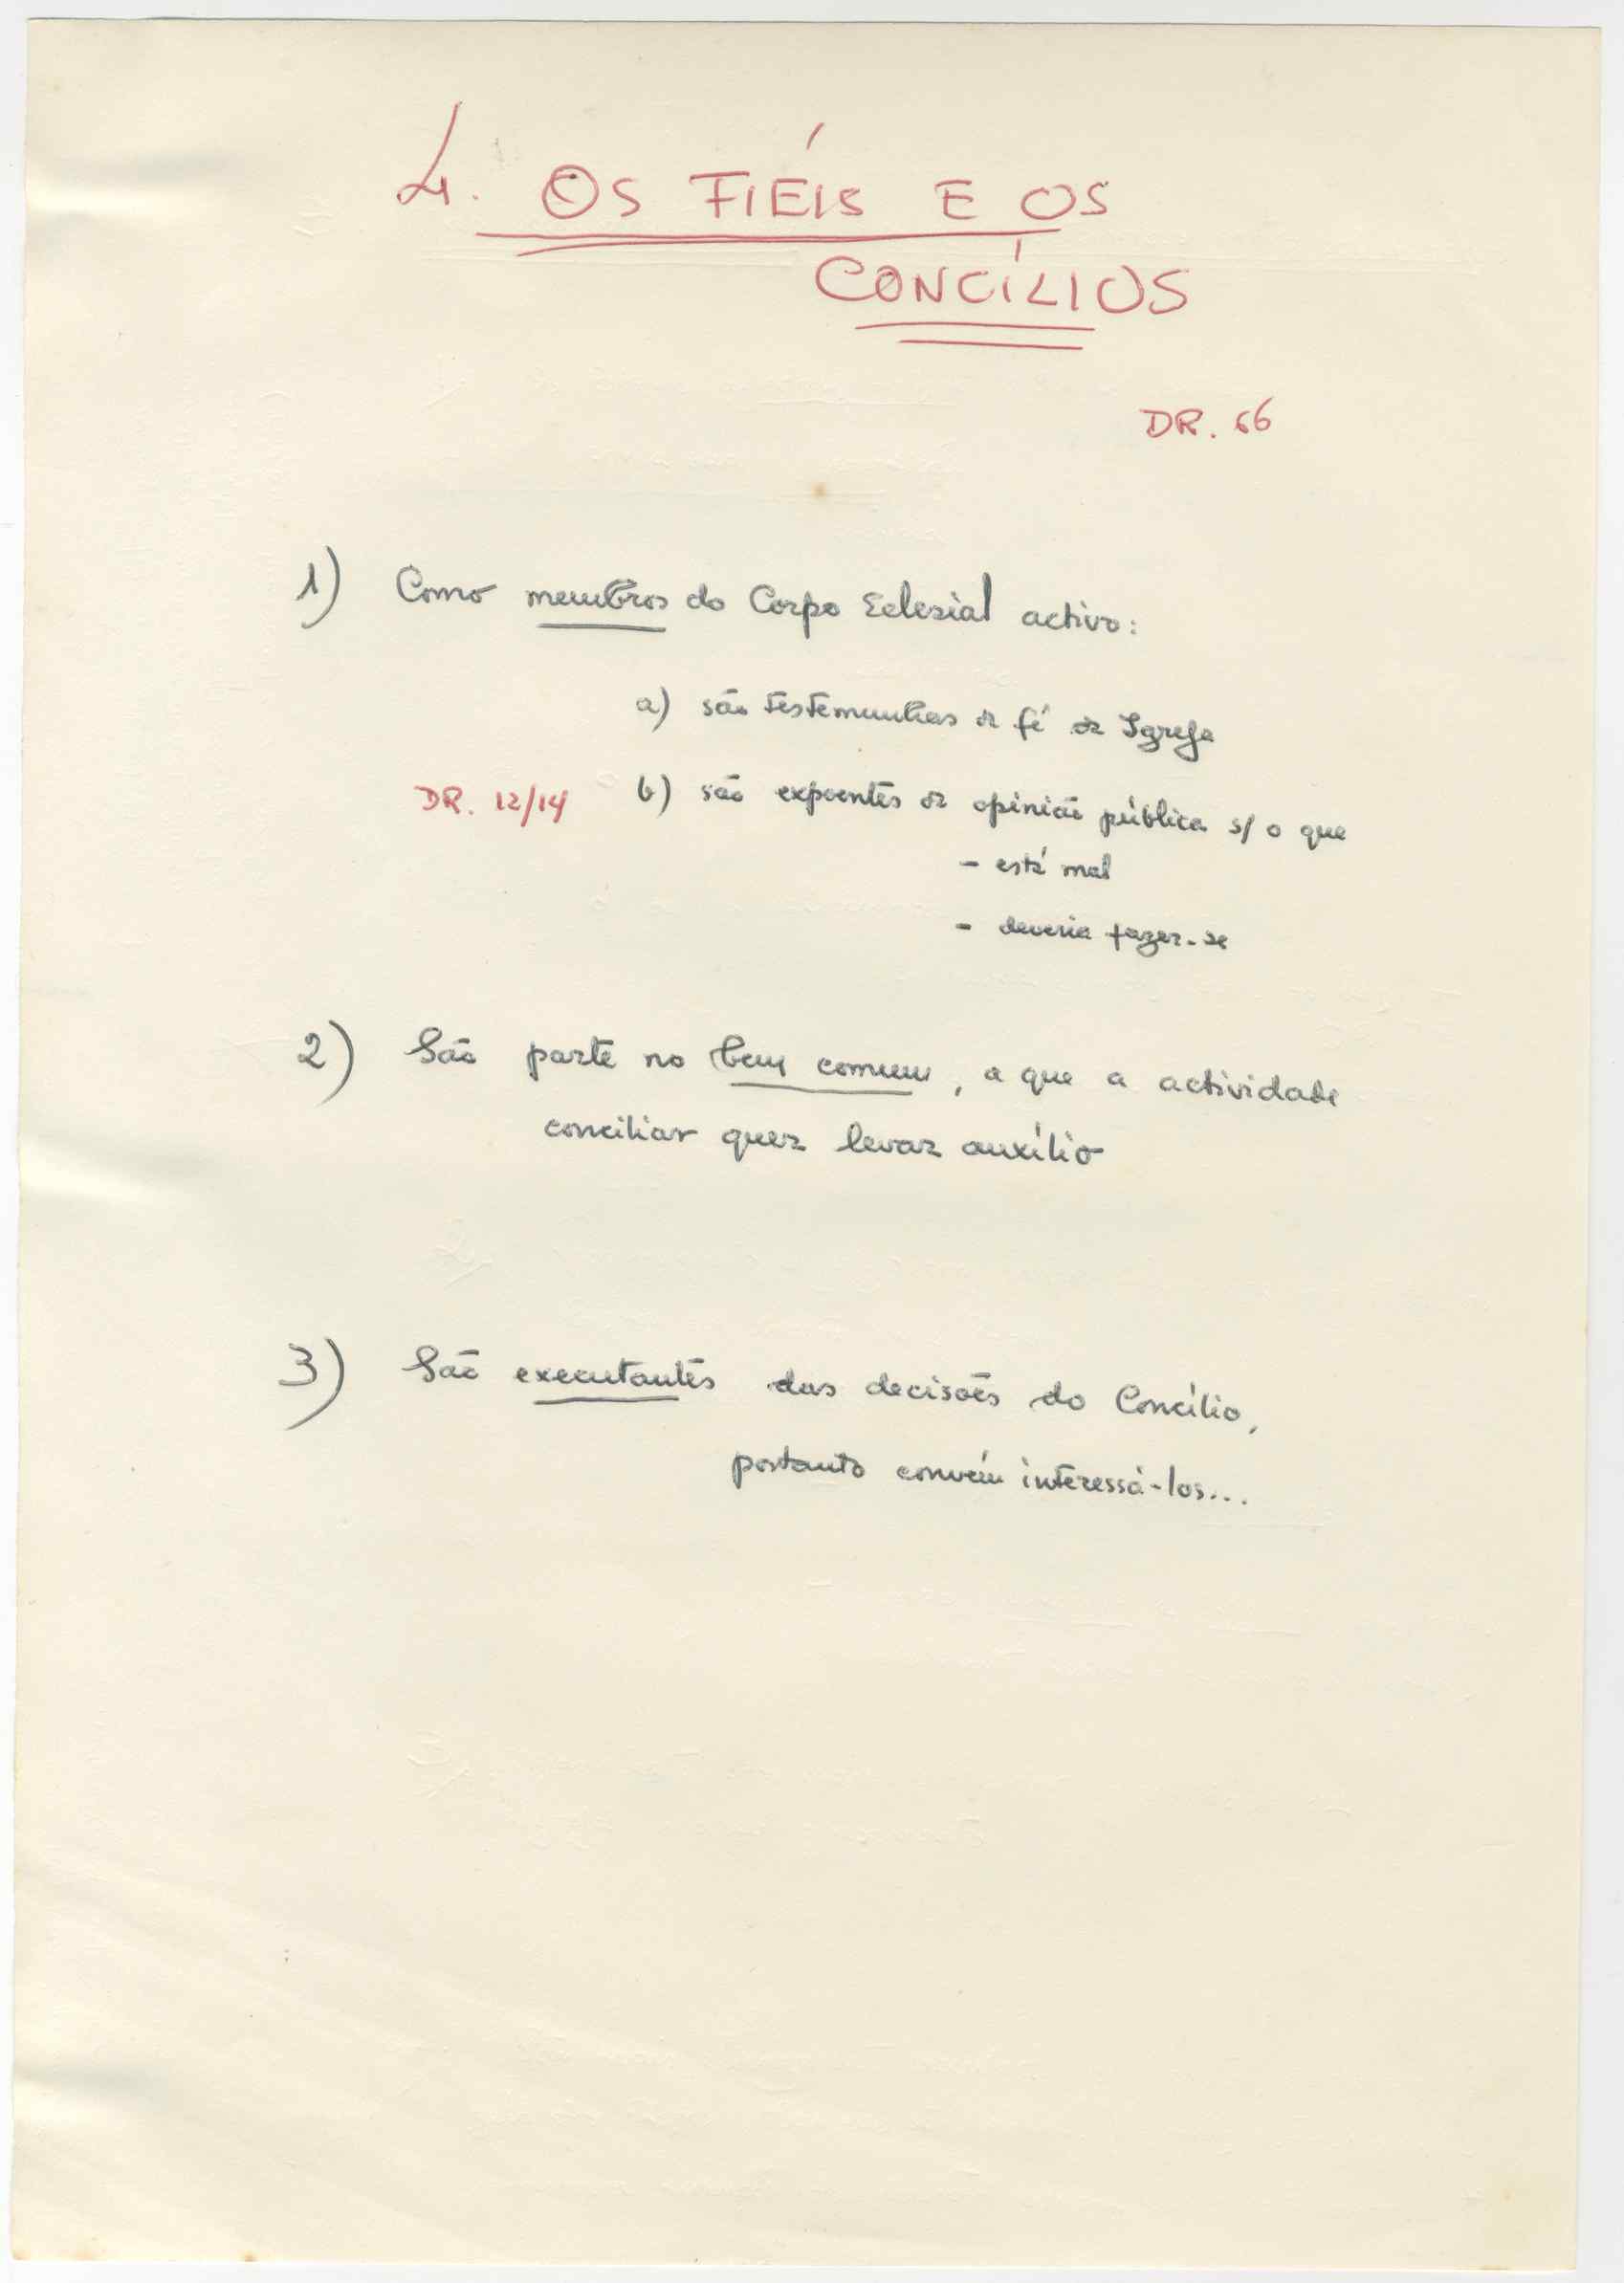 4. OS FIÉIS E OS
CONCÍLIOS
DR. 66
1) Como membros do Corpo Eclesial activo:
a) são testemunhas da fé da Igreja
DR. 12/14 b) são expoentes da opinião pública s/ o que
- está mal
- deveria fazer-se
2) São parte no bem comum, a que a actividade
conciliar quer levar auxílio
3) São executantes das decisões do Concílio,
portanto convém interessá-los...